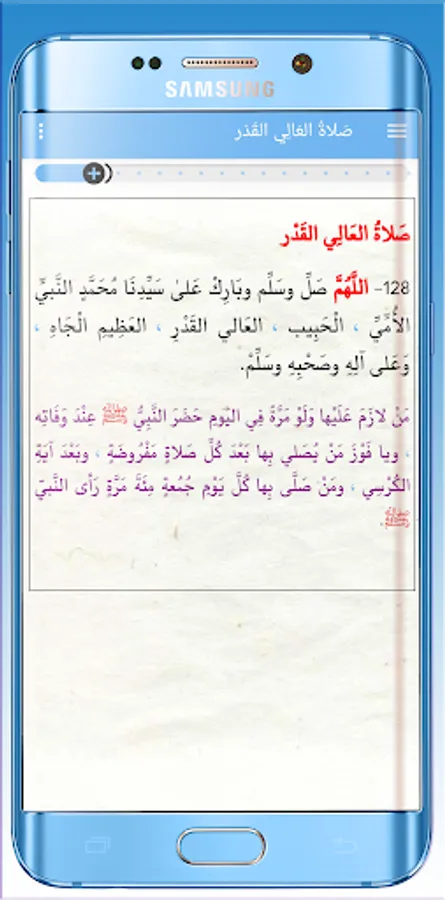 SAMSUNG
صَلاةُ العَالِي القَدْر
صَلاةُ العَالِي القَدْر
128- اللَّهُمَّ صَلِّ وسَلِّم وبَارِكْ عَلىٰ سَيِّدِنَا مُحَمَّدٍ النَّبيِّ
الأُمِّيِّ ، الْحَبِيب ، العَالي القَدْرِ ، العَظِيمِ الْجَاهِ ،
وَعَلى آلِهِ وصَحْبِهِ وسَلِّمْ.
مَنْ لازَمَ عَلَيْها وَلَوْ مَرَّةً فِي اليَوْمِ حَضَرَ النَّبِيُّ ﷺ عِنْدَ وَفَاتِه
، ويا فَوْزَ مَنْ يُصَلي بِها بَعْدَ كُلِّ صَلاةٍ مَفْرُوضَةٍ ، وبَعْدَ آيَةِ
الكُرْسِي ، ومَنْ صَلَّى بِها كُلَّ يَوْمِ جُمُعةٍ مِئَةَ مَرَّةٍ رَأى النَّبيّ
ﷺ.